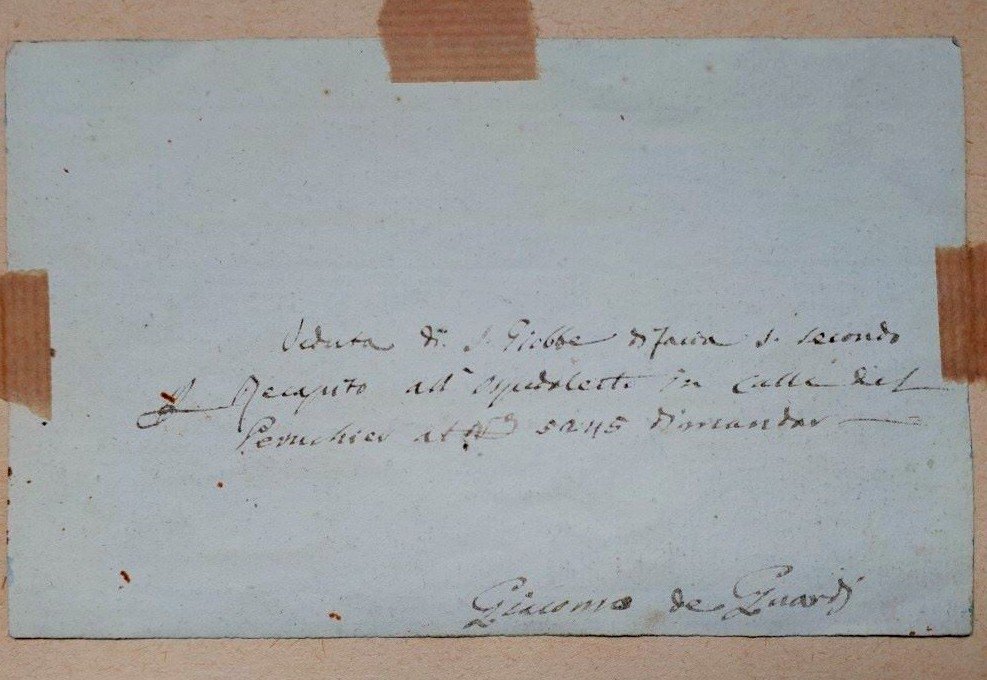 Veduta di S. Giobbe difacia S. Secondo
Recapito all' Ospedoletti in Calle del
Peruchier al N° 5245 dimandar
Giacomo de Guardi